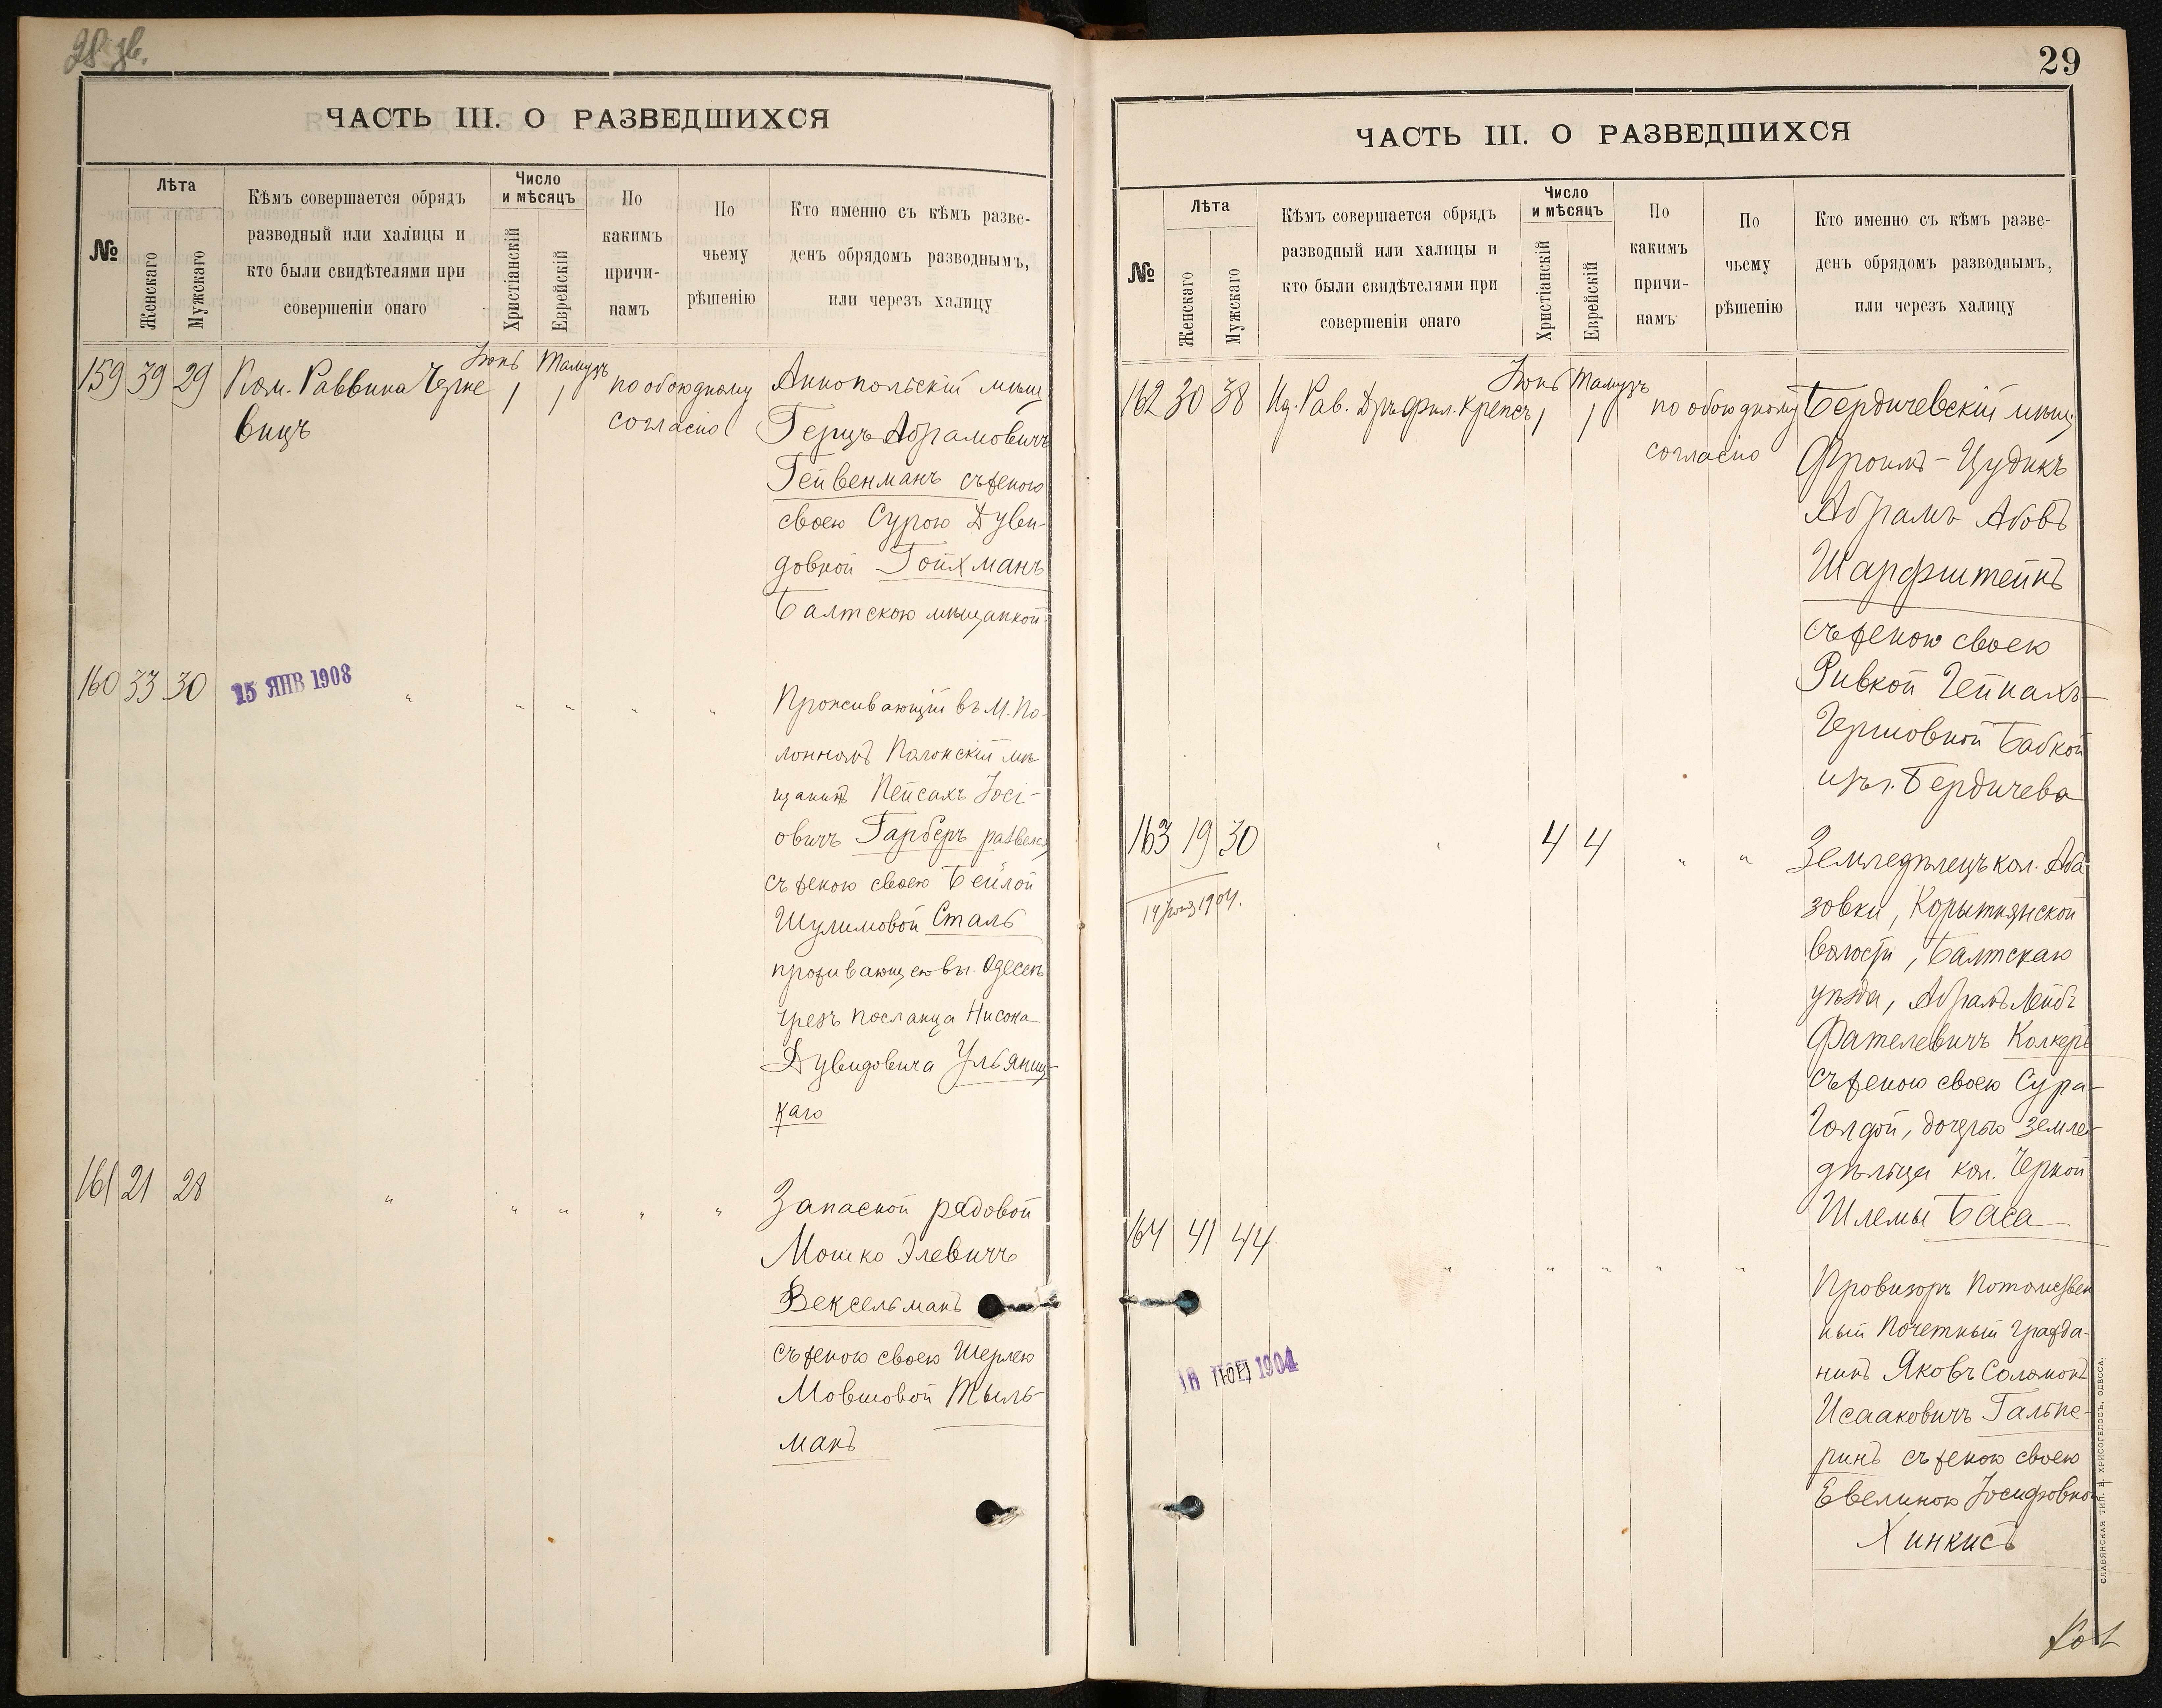 28 зв.
ЧАСТЬ III. О РАЗВЕДШИХСЯ
№
Лѣта
Женскаго
Мужскаго
Кѣмъ совершается обрядъ
разводный или халицы и
кто были свидѣтелями при
совершеніи онаго
Число
и мѣсяцъ
Христіанскій
Еврейскій
По
какимъ
причи-
намъ
По
чьему
рѣшенію
Кто именно съ кѣмъ разве-
денъ обрядомъ разводнымъ,
или черезъ халицу
Іюнь Тамузъ
159 39 29 Пом. Раввина Черке 1 1 по обоюдному Аннопольскій мѣщ.
вицъ согласію Герцъ Абрамовичъ
Гейвенманъ съ женою
своею Сурою Дуви-
довной Гойхманъ
Балтскою мѣщанкой
160 33 30 15 ЯНВ 1908 " " " " " Проживающій въ М. По-
лонномъ мѣ-
щанинъ Пейсахъ Іосі-
овичъ Гарберъ развелся
съ женою своею Бейлой
Шулимовой Сталь
проживающею въ г. Одессѣ
чрезъ посланца Нисона
Дувидовича Ульяниц-
каго
161 21 28 " " " " " Запасной рядовой
Мошко Элевичъ
Вексельманъ
съ женою своею Шерлею
Мовшовой Тыль-
манъ
29
ЧАСТЬ III. О РАЗВЕДШИХСЯ
№
Лѣта
Женскаго
Мужскаго
Кѣмъ совершается обрядъ
разводный или халицы и
кто были свидѣтелями при
совершеніи онаго
Число
и мѣсяцъ
Христіанскій
Еврейскій
По
какимъ
причи-
намъ
По
чьему
рѣшенію
Кто именно съ кѣмъ разве-
денъ обрядомъ разводнымъ,
или черезъ халицу
Іюнь Тамузъ
162 30 38 Рав. Д-ръ фил. Крепсъ 1 1 по обоюдному Бердичевскій мѣщ.
согласію Фроимъ-Цудикъ
Абрамъ Абовъ
Шарфштейнъ
съ женою своею
Ривкой Чейнахъ-
Гершовной Бабкой
изъ г. Бердичева
163 19 30 " 4 4 " " Земледѣлецъ кол. Аба-
14 1904.
зовки, Корытнянской
волости, Балтскаго
уѣзда, Абрамъ Лейбъ
Фателевичъ Колкеръ
съ женою своею Сура-
Голдой, дочерью земле-
дѣльца кол. Черной
Шлемы Баса
164 41 44 " " " " " Провизоръ Потомствен
ный Почетный Гражда-
нинъ Яковъ Соломонъ
18 1904
Исааковичъ Гальпе-
ринъ съ женою своею
Евелиною Іосифовной
Хинкисъ
СЛАВЯНСКАЯ ТИП. Н. ХРИСОГЕЛОСЪ, ОДЕССА.